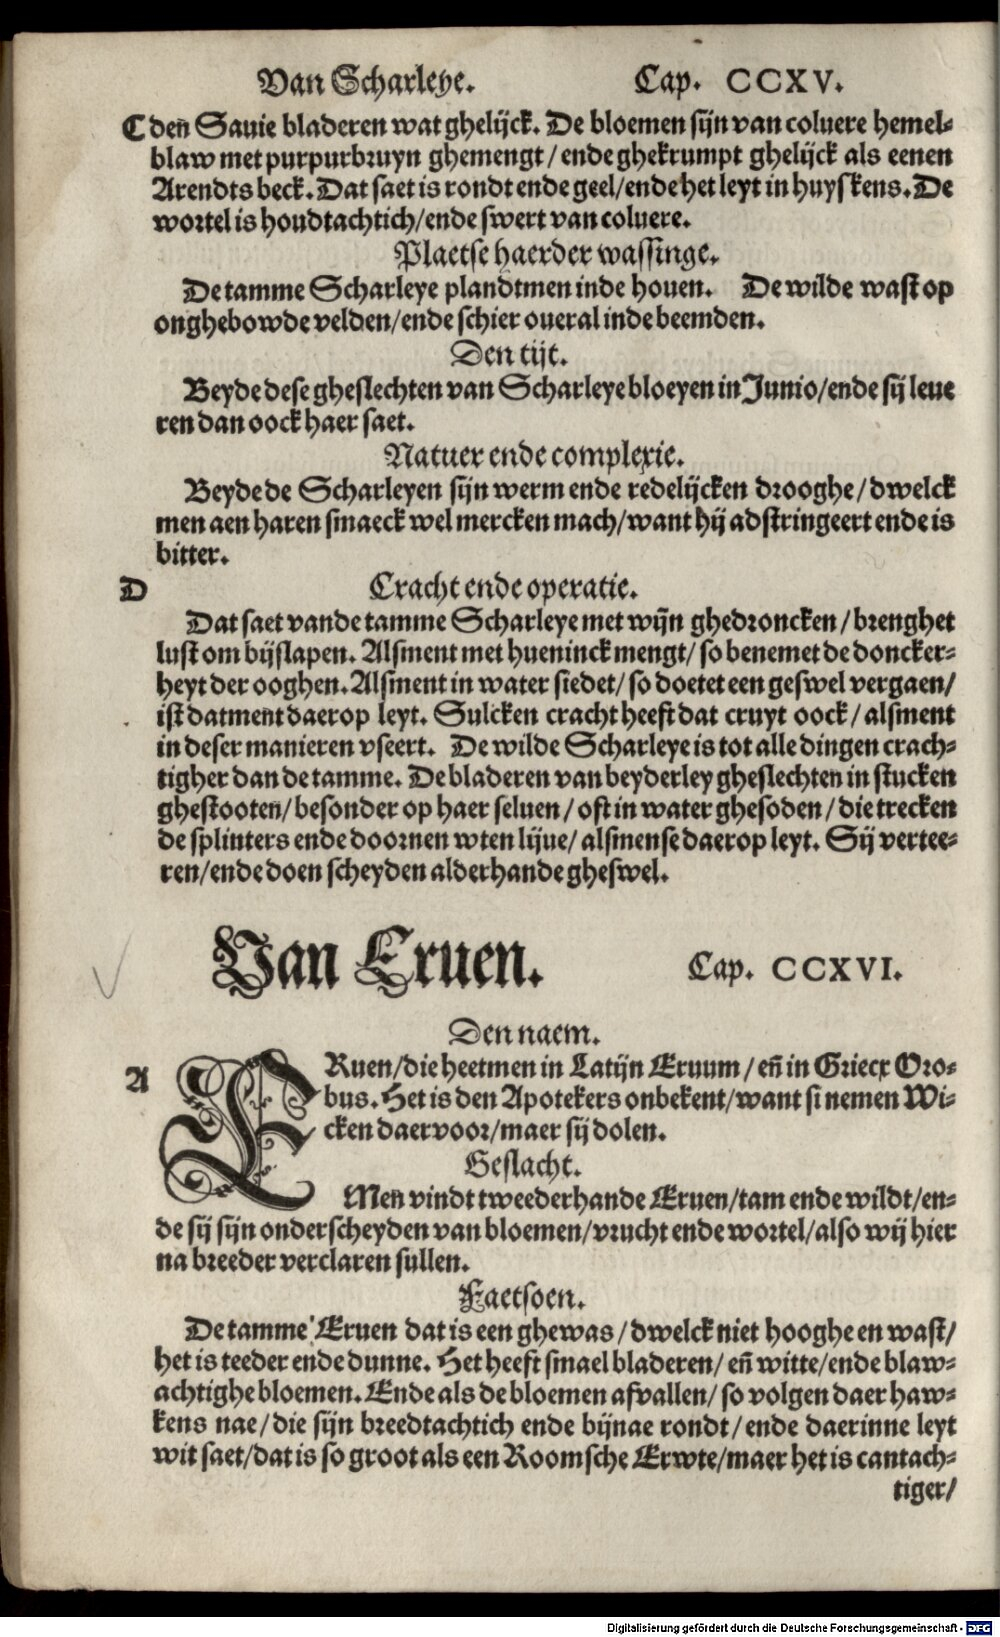 Van Scharleye. Cap. CCXV.
C den̄ Sauie bladeren wat ghelijck. De bloemen sijn van coluere hemel-
blaw met purpurbruyn ghemengt / ende ghekrumpt ghelijck als eenen
Arendts beck. Dat saet is rondt ende geel/ende het leyt in huyskens. De
wortel is houdtachtich/ende swert van coluere.
Plaetse haerder wassinge.
De tamme Scharleye plandtmen inde houen. De wilde wast op
onghebowde velden/ende schier oueral inde beemden.
Den tijt.
Beyde dese gheslechten van Scharleye bloeyen in Junio/ende sij leue
ren dan oock haer saet.
Natuer ende complexie.
Beyde de Scharleyen sijn werm ende redelijcken drooghe/dwelck
men aen haren smaeck wel mercken mach/want hij adstringeert ende is
bitter.
D Cracht ende operatie.
Dat saet vande tamme Scharleye met wijn ghedroncken/brenghet
lust om bijslapen. Alsment met hueninck mengt/so benemet de doncker-
heyt der ooghen. Alsment in water siedet/so doetet een geswel vergaen/
ist datment daerop leyt. Sulcken cracht heeft dat cruyt oock/alsment
in deser manieren vseert. De wilde Scharleye is tot alle dingen crach-
tigher dan de tamme. De bladeren van beyderley gheslechten in stucken
ghestooten/besonder op haer seluen/oft in water ghesoden/die trecken
de splinters ende doornen wten lijue/alsmense daerop leyt. Sij vertee-
ren/ende doen scheyden alderhande gheswel.
Van Eruen. Cap. CCXVI.
Den naem.
A ERuen/die heetmen in Latijn Eruum/en̄ in Griecx Oro-
bus. Het is den Apotekers onbekent/want si nemen Wi-
cken daer voor/maer sij dolen.
Geslacht.
Men vindt tweederhande Eruen/tam ende wildt/en-
de sij sijn onderscheyden van bloemen/vrucht ende wortel/also wij hier
na breeder verclaren sullen.
Faetsoen.
De tamme Eruen dat is een ghewas/dwelck niet hooghe en wast/
het is teeder ende dunne. Het heeft smael bladeren/en̄ witte/ende blaw-
achtighe bloemen. Ende als de bloemen afvallen/so volgen daer haw-
kens nae/die sijn breedtachtich ende bijnae rondt/ende daerinne leyt
wit saet/dat is so groot als een Roomsche Erwte/maer het is cantach-
tiger/
Digitalisierung gefördert durch die Deutsche Forschungsgemeinschaft - DFG